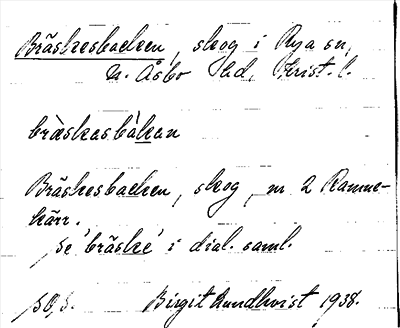 Bräskesbacken, skog i Rya sn,
N. Åsbo hd, Krist. l.
bræ̀skasbàkan
Bräskesbacken, skog, nr 2 Ramne-
kärr.
Se 'bräske' i dial. saml.
Birgit Lundkvist 1938.